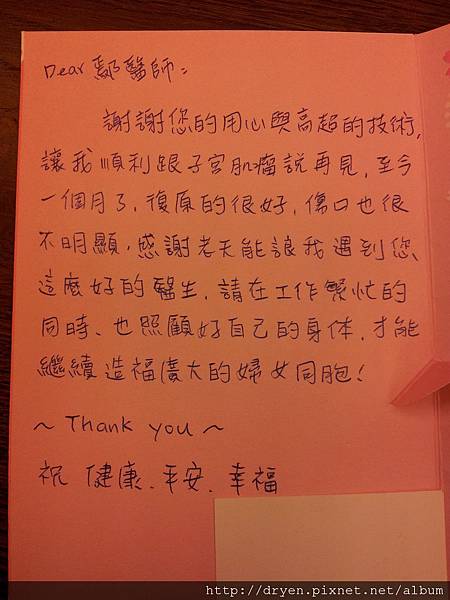 Dear 鄢醫師:
謝謝您的用心與高超的技術,
讓我順利跟子宮肌瘤說再見,至今
一個月了,復原的很好,傷口也很
不明顯,感謝老天能讓我遇到您、
這麼好的醫生,請在工作繁忙的
同時、也照顧好自己的身体,才能
繼續造福廣大的婦女同胞!
~ Thank you ~
祝 健康、平安、幸福
http://dryen.pixnet.net/album